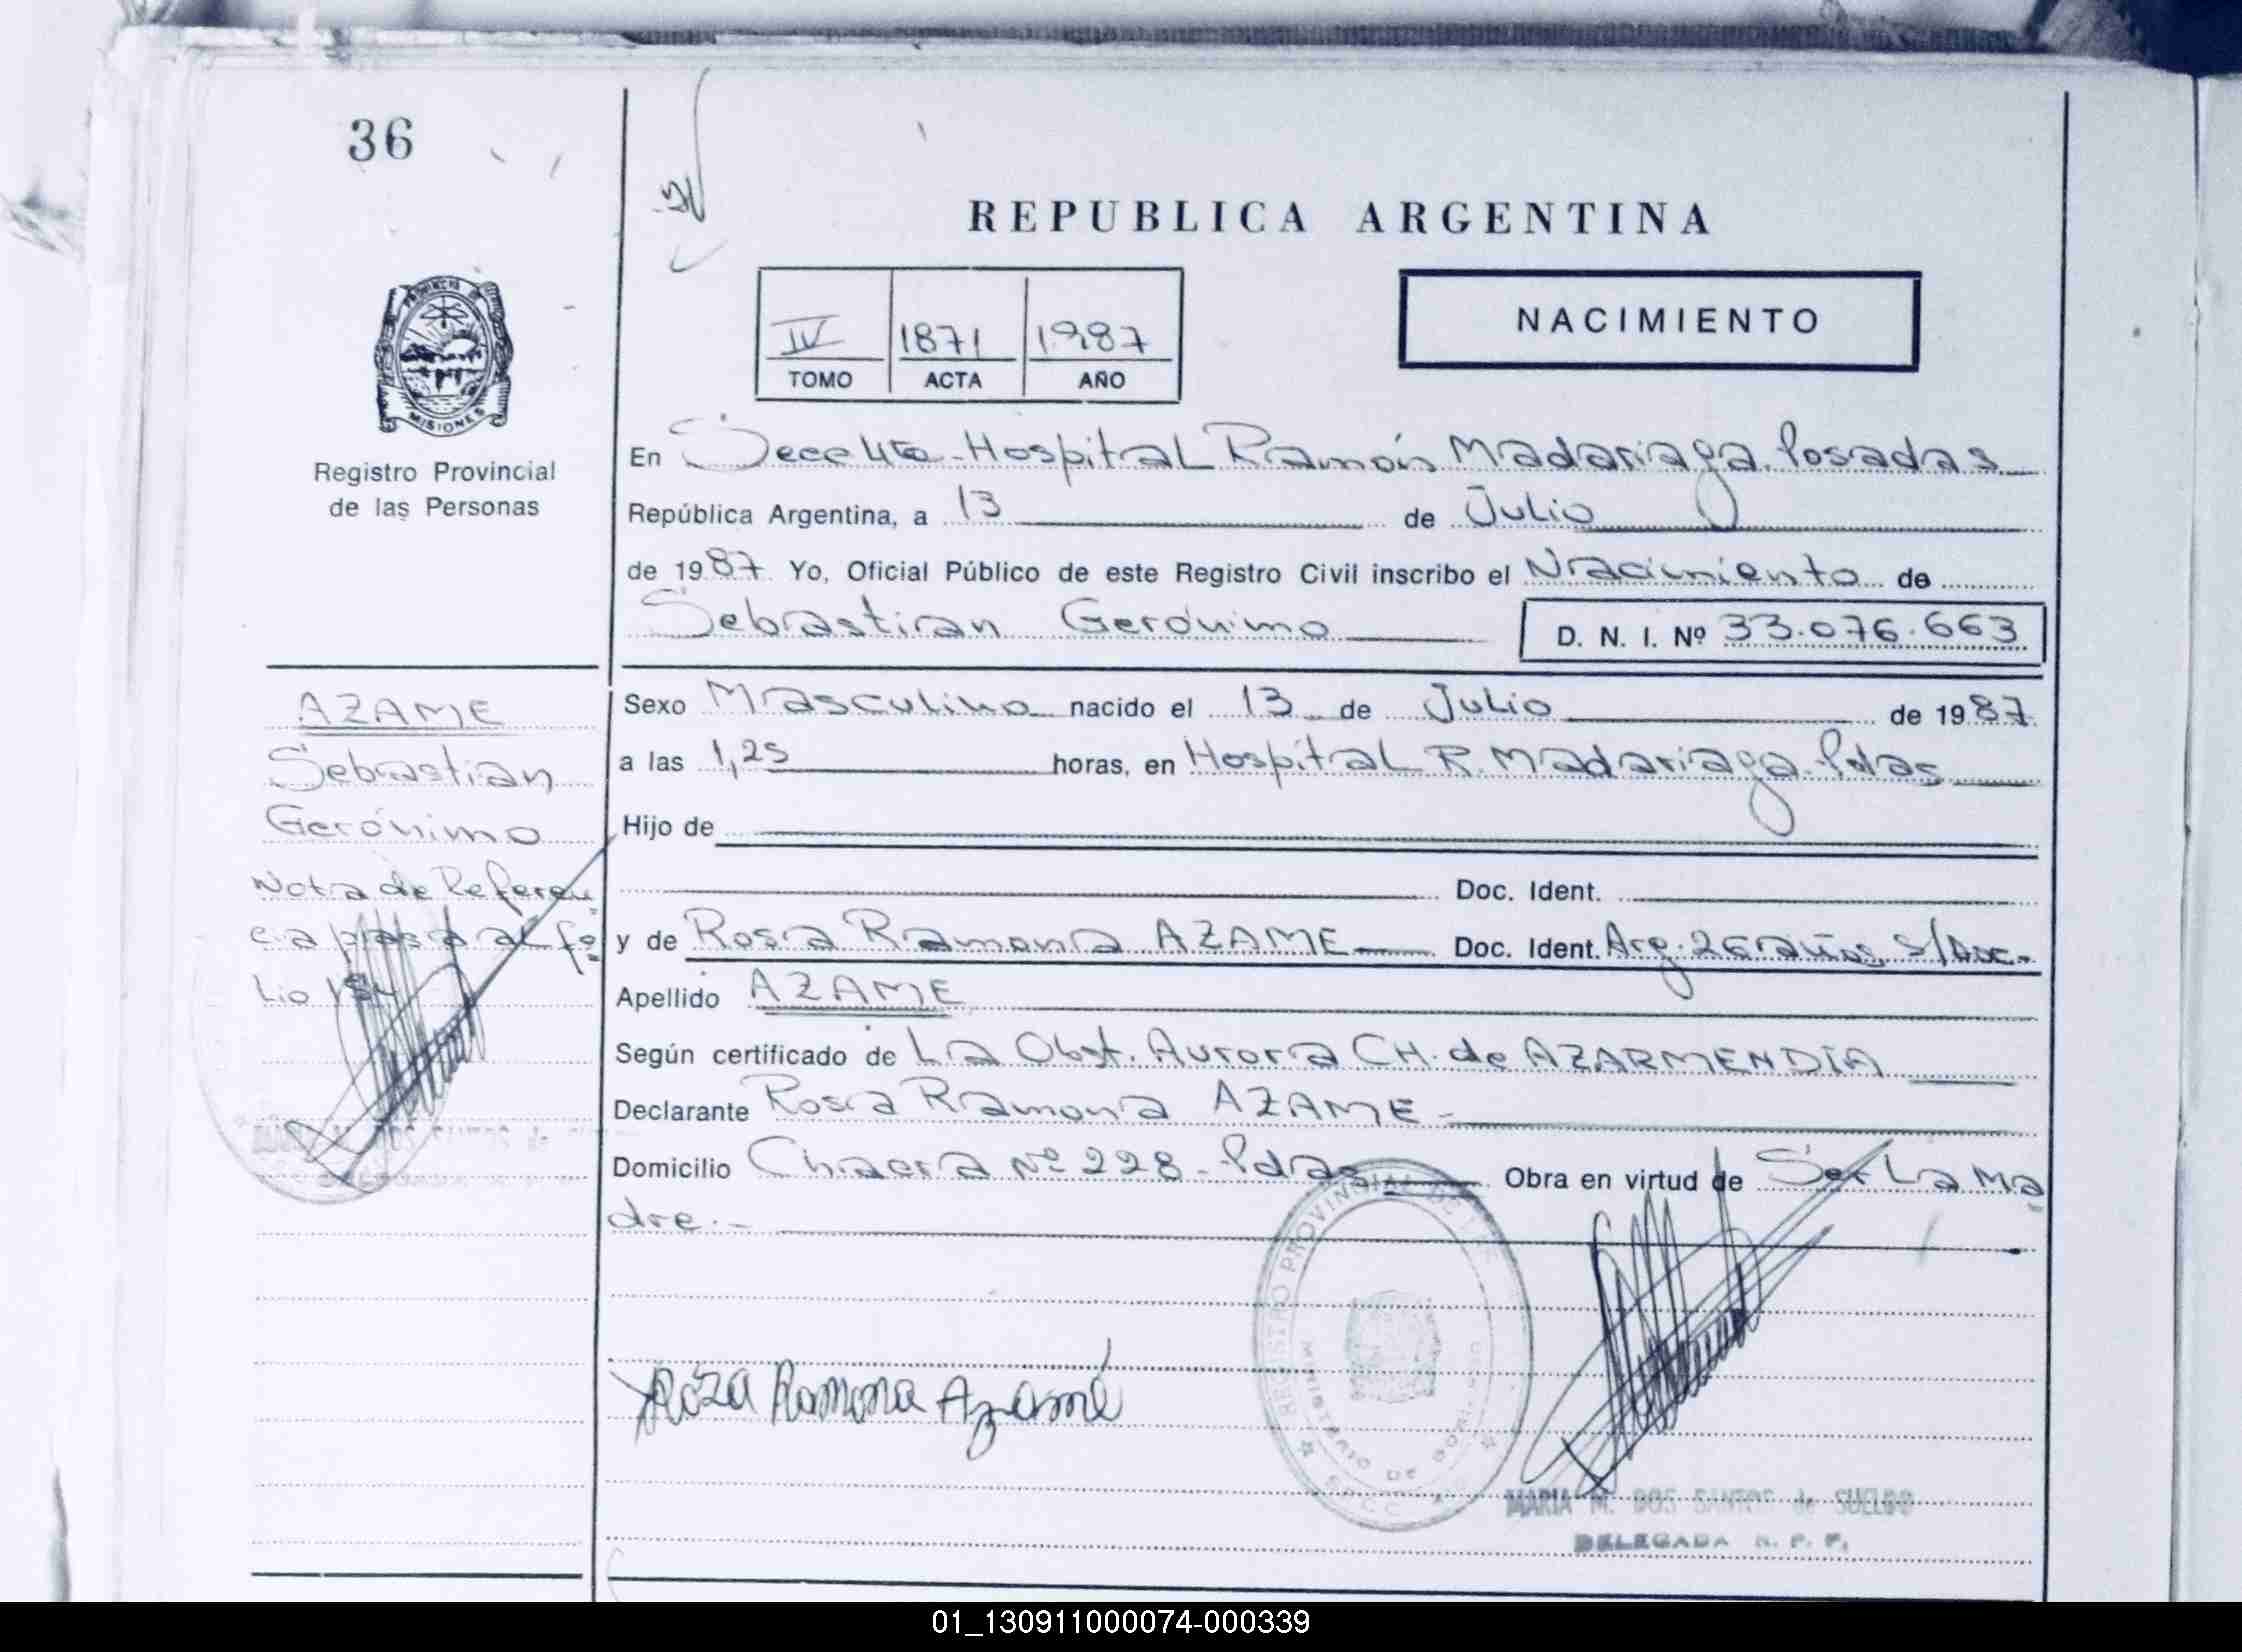 36
REPUBLICA ARGENTINA
NACIMIENTO
IV 1871 1987
TOMO ACTA AÑO
PROVINCIA DE
MISIONES
Registro Provincial
de las Personas
En Secc 4ta - Hospital Ramón Madariaga. Posadas
República Argentina, a 13 de Julio
de 1987. Yo, Oficial Público de este Registro Civil inscribo el Nacimiento de
Sebastian Gerónimo
D. N. I. Nº 33.076.663
AZAME
Sebastian
Gerónimo
Nota de Referen
cia pasa al fo
lio
Sexo Masculino nacido el 13 de Julio de 1987.
a las 1,25 horas, en Hospital R. Madariaga. Pdas
Hijo de
Doc. Ident.
y de Rosa Ramona AZAME Doc. Ident. Arg. 26 años, s/Doc.
Apellido AZAME
Según certificado de La Obst. Aurora CH. de AZARMENDIA
Declarante Rosa Ramona AZAME -
Domicilio Chacra Nº 228 - Pdas Obra en virtud de Ser La Ma
dre.-
REGISTRO PROVINCIAL DE LAS
MINISTERIO DE GOBIERNO
Roza Ramona Azamé
MARIA M. DOS SANTOS de SUELDO
DELEGADA R. P. P.
01_130911000074-000339